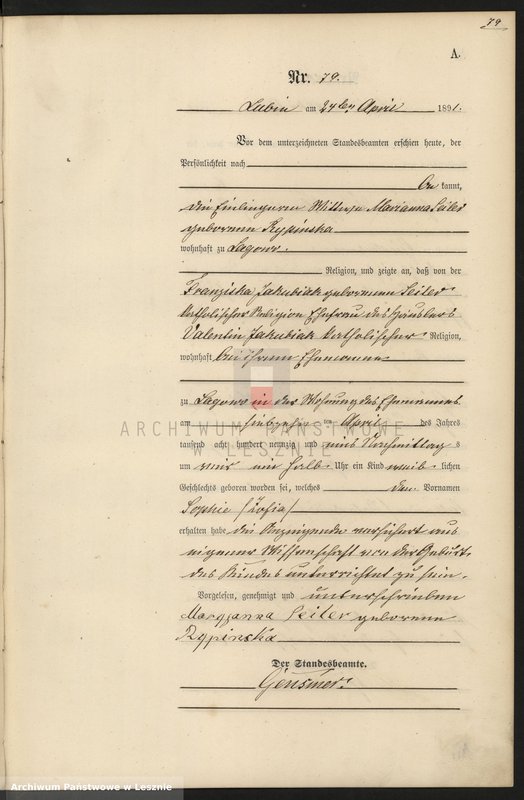 79
A.
Nr. 79.
Lubin am 24ten April 1891.
Vor dem unterzeichneten Standesbeamten erschien heute, der
Persönlichkeit nach
be kannt,
die Einliegerin Wittwe Marianna Seiler
geborene Rypinska
wohnhaft zu Lagowo.
Religion, und zeigte an, daß von der
Franziska Jakubiak geborenen Seiler
katholischer Religion Ehefrau des Häuslers
Valentin Jakubiak katholischer Religion,
wohnhaft bei ihrem Ehemanne
zu Lagowo in der Wohnung des Ehemannes
am siebzehn ten April des Jahres
tausend acht hundert neunzig und eins Vormittag s
um ein halb Uhr ein Kind weib lichen
Geschlechts geboren worden sei, welches den Vornamen
Sophie /Zofia/
erhalten habe die Anzeigende versichert aus
eigener Wissenschaft von der Geburt
des Kindes unterrichtet zu sein.
Vorgelesen, genehmigt und unterschrieben
Maryjanna Seiler geborene
Rypinska
Der Standesbeamte.
Gensmer
ARCHIWUM PAŃSTWOWE
W LESZNIE
Archiwum Państwowe w Lesznie